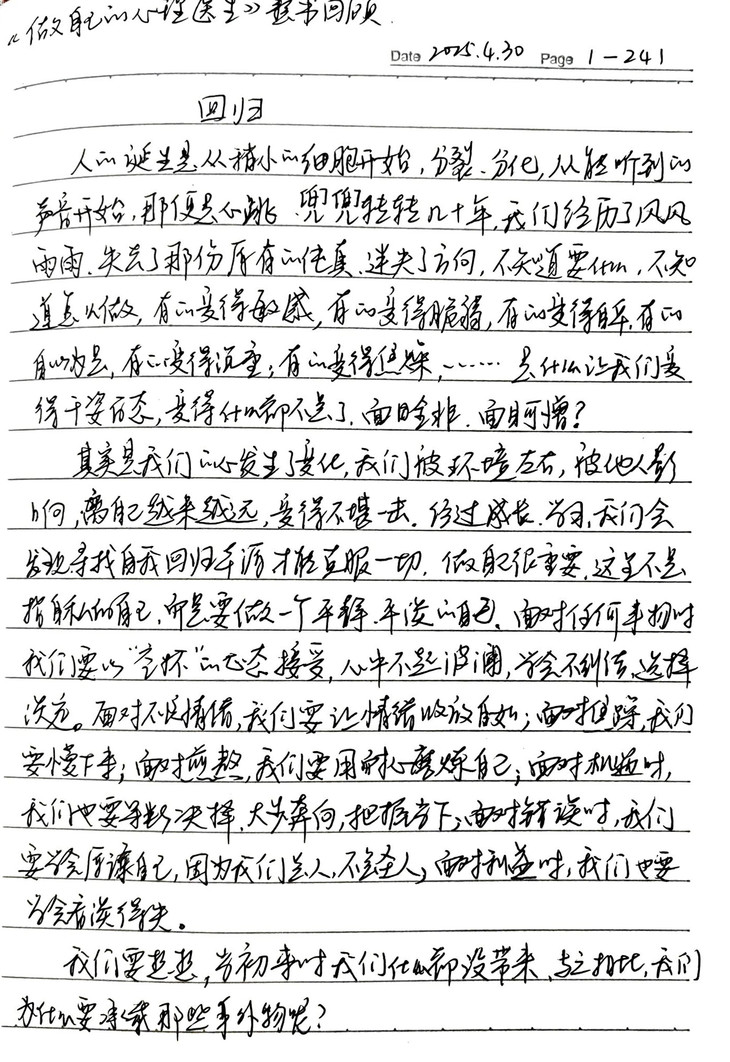 《做自己的心理医生》整书回顾
Date 2025.4.30 Page 1-241
回归
人的诞生是从稍小的细胞开始,分裂、分化,从能听到的
声音开始,那便是心跳。兜兜转转几十年,我们经历了风风
雨雨、失去了那份原有的纯真、迷失了方向,不知道要什么,不知
道怎么做,有的变得敏感,有的变得脆弱,有的变得自卑,有的
自以为是,有的变得沉重;有的变得焦躁,……是什么让我们变
得千姿百态,变得什么都不是了,面目全非、面目可憎?
其实是我们的心发生了变化,我们被环境左右,被他人影
响,离自己越来越远,变得不堪一击。经过成长、学习,我们会
发现寻找自我回归本源才能克服一切。做自己很重要,这里不是
指自私的自己,而是要做一个平静、平淡的自己。面对任何事物时
我们要以“空杯”的心态接受,心中不起波澜,学会不纠结、选择
淡定。面对不良情绪,我们要让情绪收放自如;面对焦躁,我们
要慢下来;面对煎熬,我们要用耐心磨炼自己;面对机遇时,
我们也要果断决择、大步奔向,把握当下;面对错误时,我们
要学会原谅自己,因为我们是人,不是圣人;面对利益时,我们也要
学会看淡得失。
我们要想想,当初来时我们什么都没带来、与之相比,我们
为什么要承载那些身外物呢?